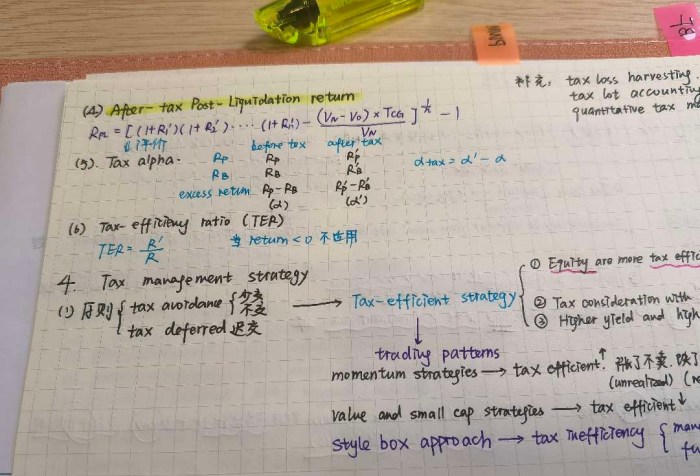 补充: tax loss harvesting.
tax lot accounting
quantitative tax
(4) After-tax Post-Liquidation return
RPL = [(1+R1')(1+R2')....(1+Rn') - (VN-V0)×TCG / VN]^1/n - 1
before tax after tax
(5). Tax alpha. RP RP RP' αtax = α' - α
RB RB RB'
excess return RP-RB RP'-RB'
(α) (α')
(6) Tax-efficiency ratio (TER)
TER = R'/R 当 return<0 不适用
4. Tax management strategy
(1) 原则 { tax avoidance { 少交 不交
tax deferred 迟交
→ Tax-efficient strategy {
① Equity are more tax effic
② Tax consideration with
③ Higher yield and high
trading patterns
momentum strategies → tax efficient↑.
(unrealized)
value and small cap strategies → tax efficient↓
style box approach → tax inefficiency {